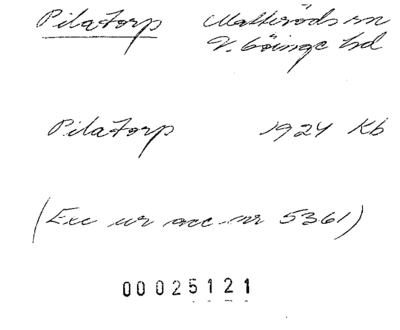 Pilatorp Matteröds sn
V. Göinge hd
Pilatorp 1924 Kb
(Exc ur acc. nr 5361)
00025121